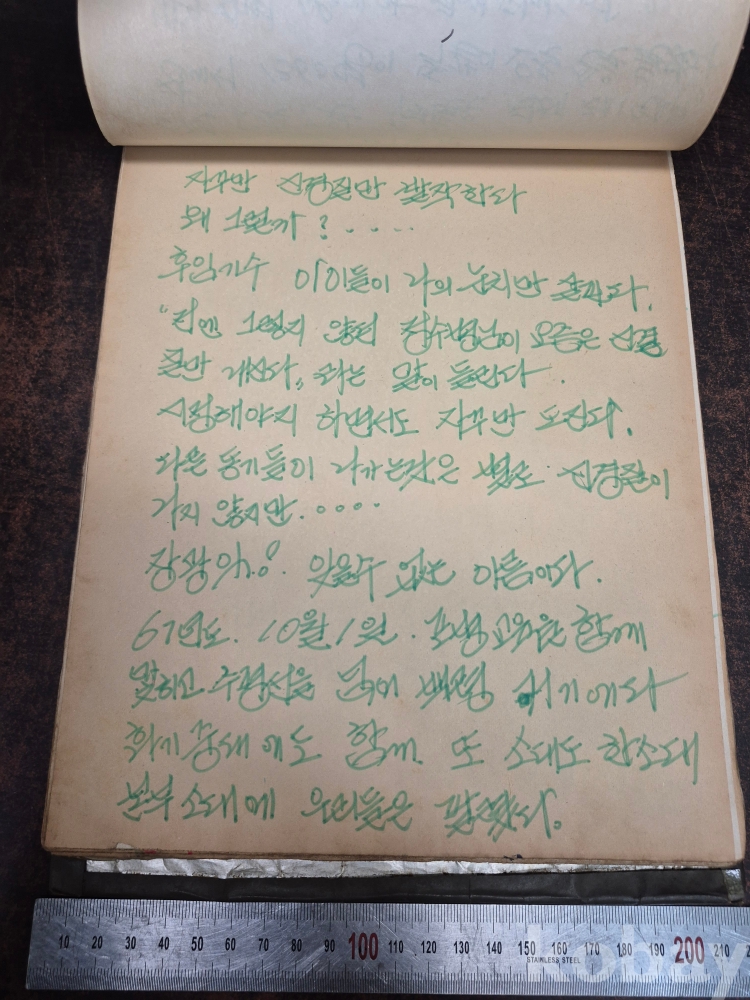 자꾸만 신경질만 발작한다
왜 그럴까?....
후임기수 아이들이 나의 눈치만 살핀다.
"전엔 그렇지 않던 장수병님이 요즘은 신경
질만 개산다„ 라는 말이 들린다.
시정해야지 하면서도 자꾸만 도진다.
다른 동기들이 나가는것은 별로 신경질이
가지 않지만.....
장광익..! 잊을수 없는 이름이다.
67년도. 10월 1일. 고생 교육을 함께
말하고 수평선을 넘어 백령 여기에다
화기 중대에도 함께. 또 소대도 한소대
본부 소대에 우리들은
10 20 30 40 50 60 70 80 90 100 110 120 130 140 150 160 170 180 190 200 210
STAINLESS STEEL
kobay